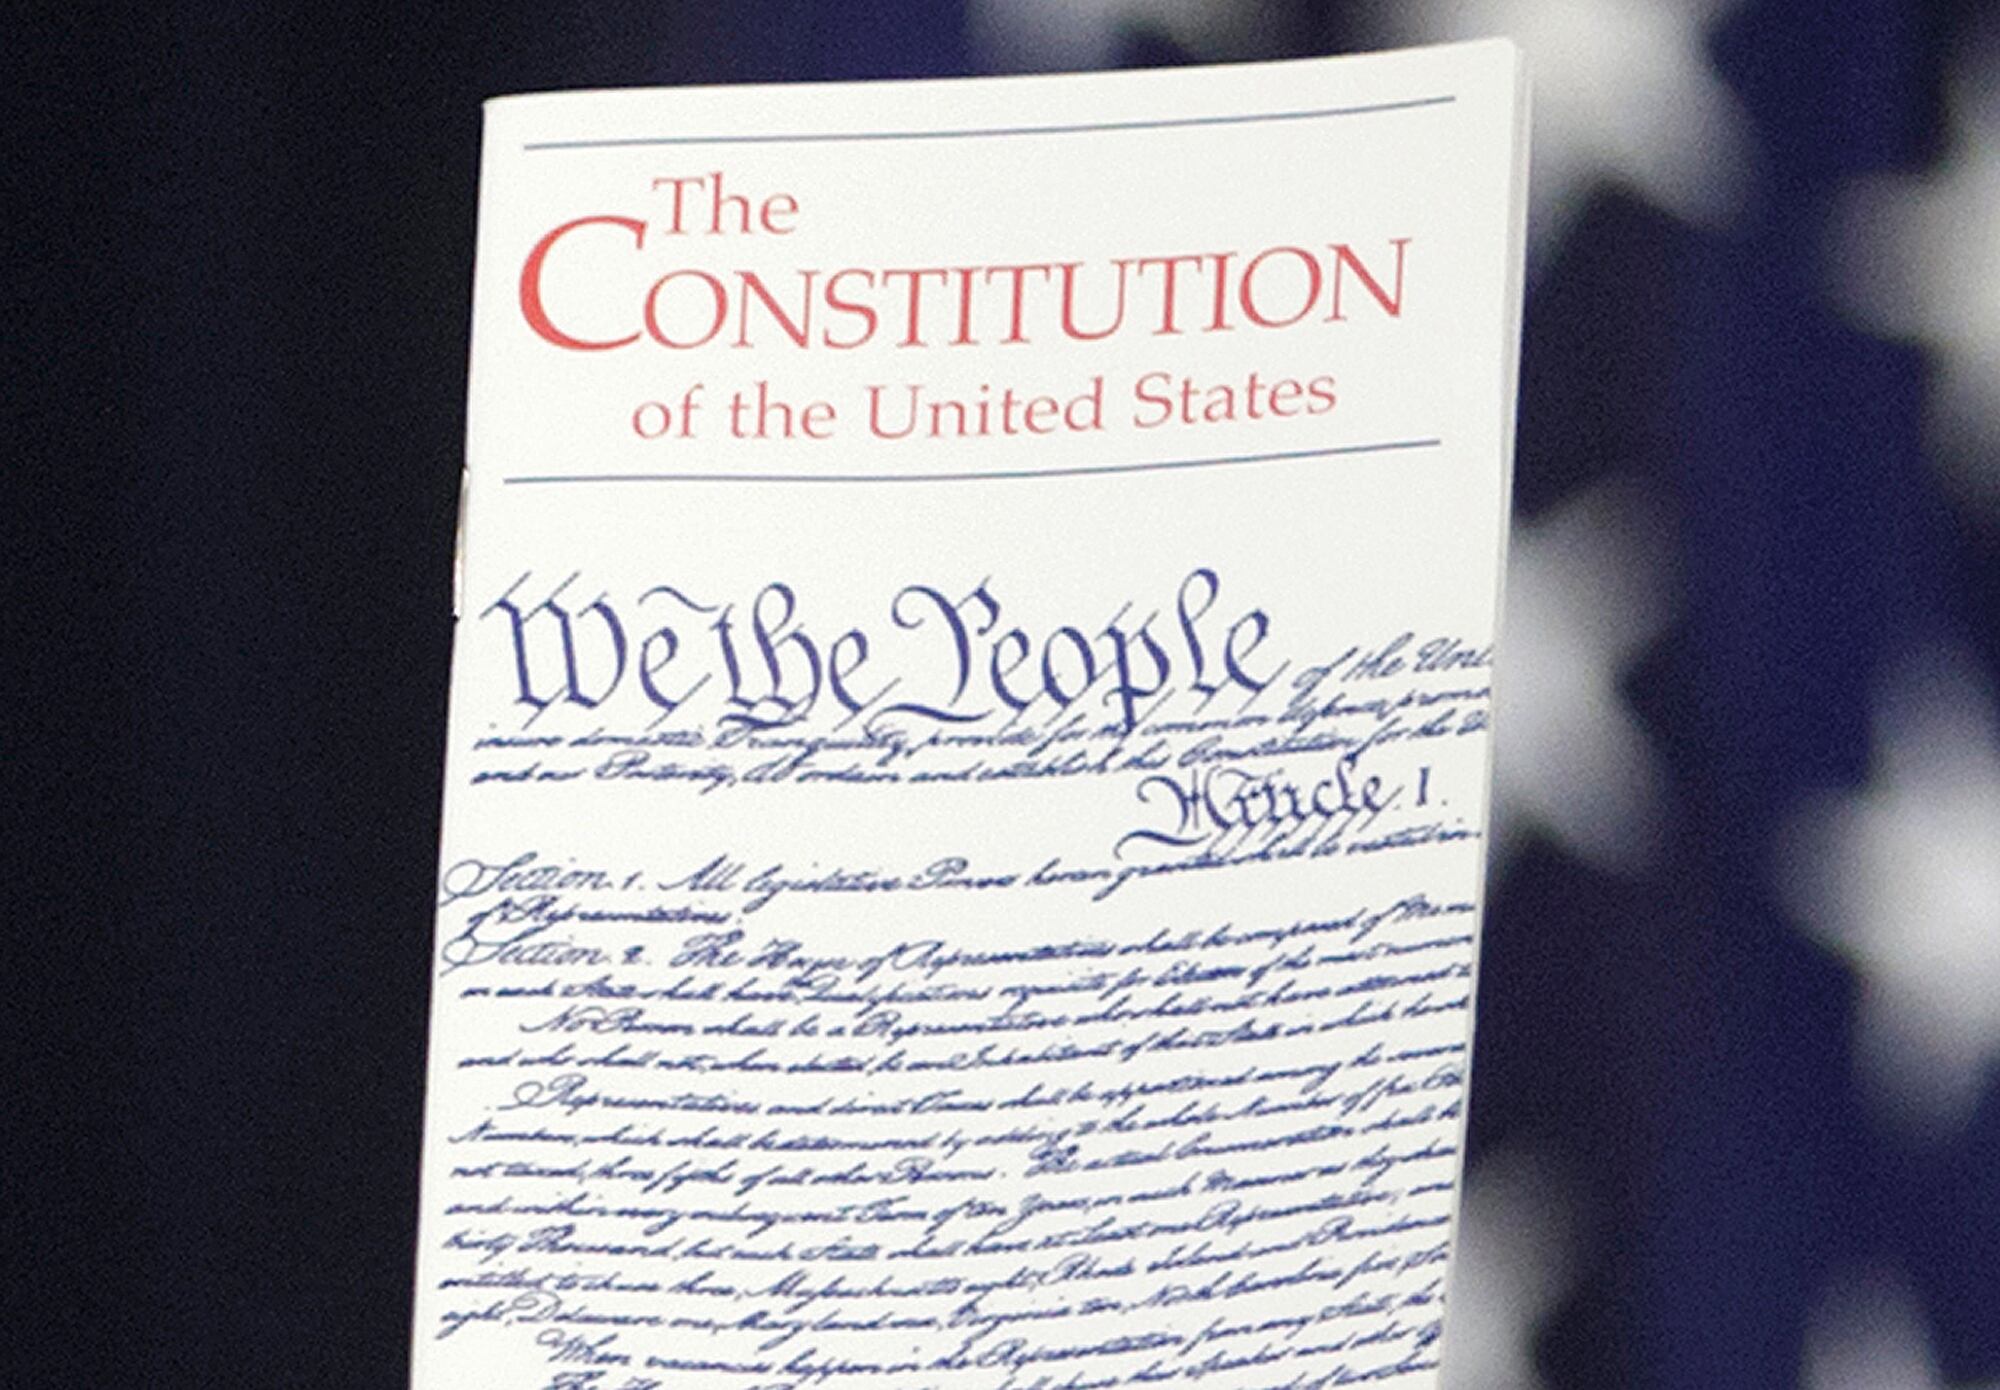 The
CONSTITUTION
of the United States
We the People of the Uni
insure domestic Tranquility, provide for the common defence, promo
and our Posterity, do ordain and establish this Constitution for the U
Article. I.
Section. 1. All legislative Powers herein granted shall be vested in
of Representatives.
Section. 2. The House of Representatives shall be composed of Mem
in each State shall have Qualifications requisite for Electors of the most numer
No Person shall be a Representative who shall not have attained t
and who shall not, when elected, be an Inhabitant of that State in which he sh
Representatives and direct Taxes shall be apportioned among the severa
Numbers, which shall be determined by adding to the whole Number of free
not taxed, three fifths of all other Persons. The actual Enumeration shall be
and within every subsequent Term of ten Years, in such Manner as they sha
thirty Thousand, but each State shall have at Least one Representative; and
entitled to chuse three, Massachusetts eight, Rhode Island and Providence
eight, Delaware one, Maryland six, Virginia ten, North Carolina five, So
When vacancies happen in the Representation from any State, the
shall chuse their Speaker and other